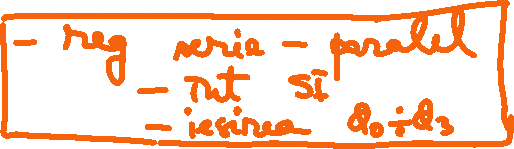 - reg serie - paralel
- Int SI
- iesirea Q0÷Q3